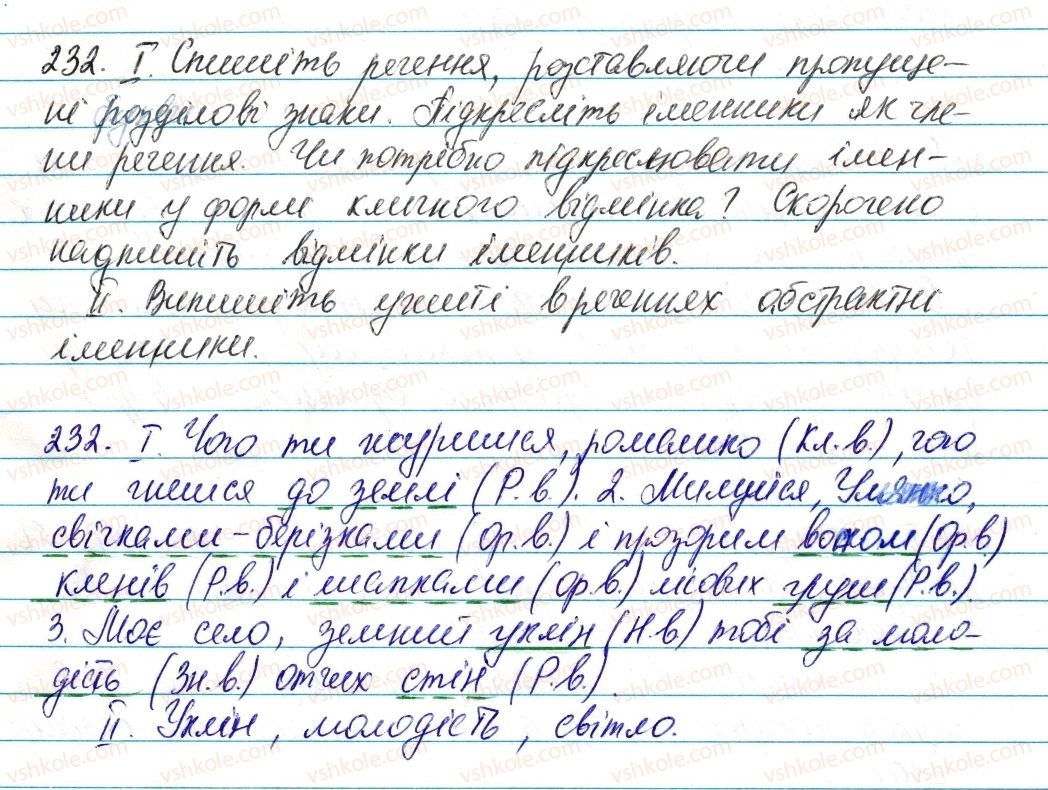 232. I. Спишіть речення, розставляючи пропуще-
ні розділові знаки. Підкресліть іменники як чле-
ни речення. Чи потрібно підкреслювати імен-
ники у формі кличного відмінка? Скорочено
надпишіть відмінки іменників.
II. Випишіть ужиті в реченнях абстрактні
іменники.
232. I. Чого ти журишся, ромашко (Кл.в.), чого
ти гнешся до землі (Р.в.). 2. Милуйся, Умянко,
свічками-берізками (Ор.в.) і прозорим воском (Ор.в)
кленів (Р.в.) і шапками (Ор.в.) лісових груш (Р.в.).
3. Моє село, земний уклін (Н.в) тобі за моло-
дість (Зн.в.) отчих стін (Р.в.).
II. Уклін, молодість, світло.
vshkole.com